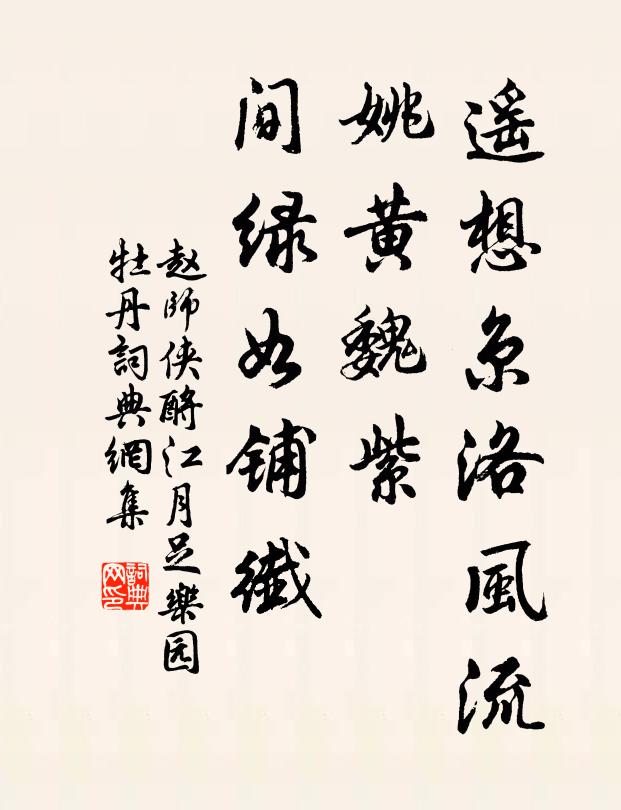 遥想京洛風流
姚黄魏紫
间绿如铺纖
赵師侠酹江月足樂园
牡丹詞典網集
詞典
网印